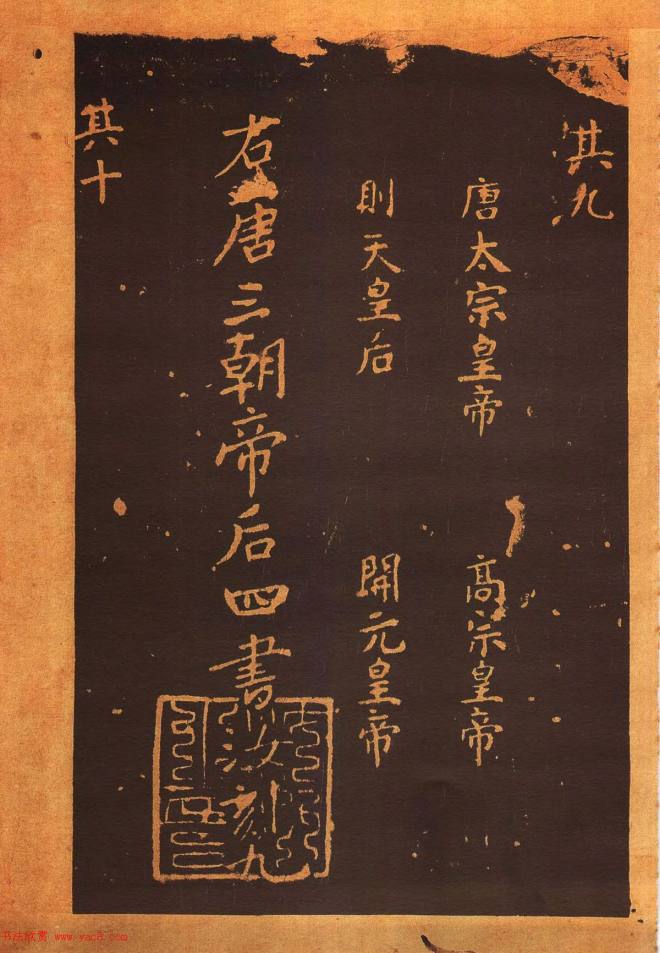 其九
唐太宗皇帝 高宗皇帝
則天皇后 開元皇帝
右唐三朝帝后四書汝刻九
其十
书法欣赏 www.yac8.com